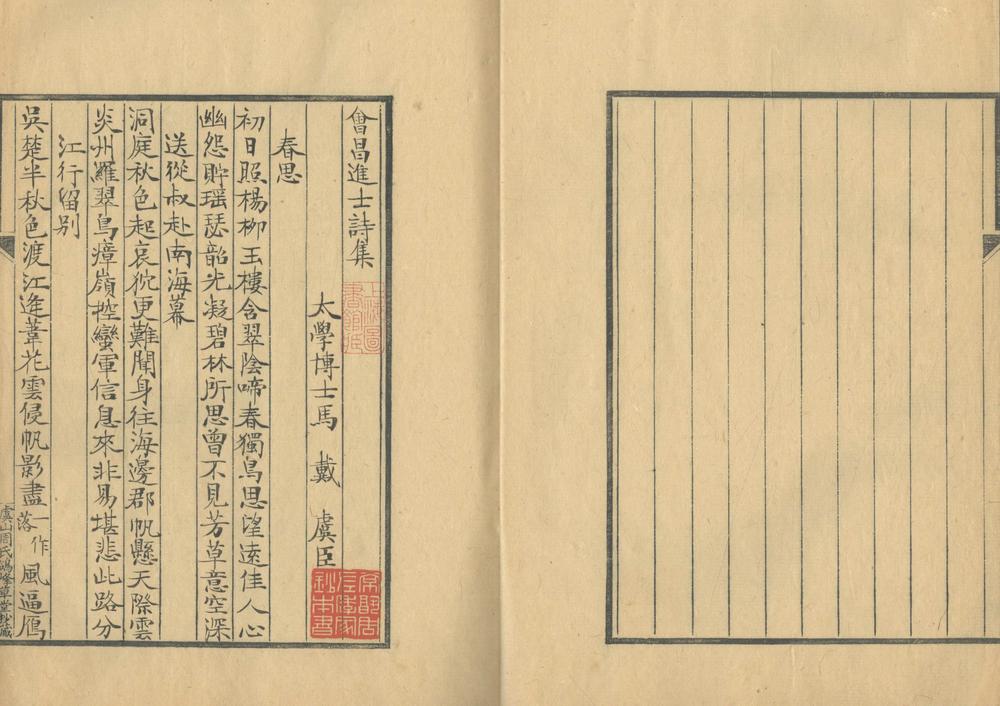 會昌進士詩集
太學博士馬 戴 虞臣
春思
初日照楊柳玉樓含翠陰啼春獨鳥思望遠佳人心
幽怨貯瑶瑟韶光凝碧林所思曾不見芳草意空深
送從叔赴南海幕
洞庭秋色起哀狖更難聞身往海邊郡帆懸天際雲
炎州羅翠鳥瘴嶺控蠻軍信息來非易堪悲此路分
江行留别
吳楚半秋色渡江逢葦花雲侵帆影盡一作落風逼鴈
虞山周氏鴿峰草堂鈔藏